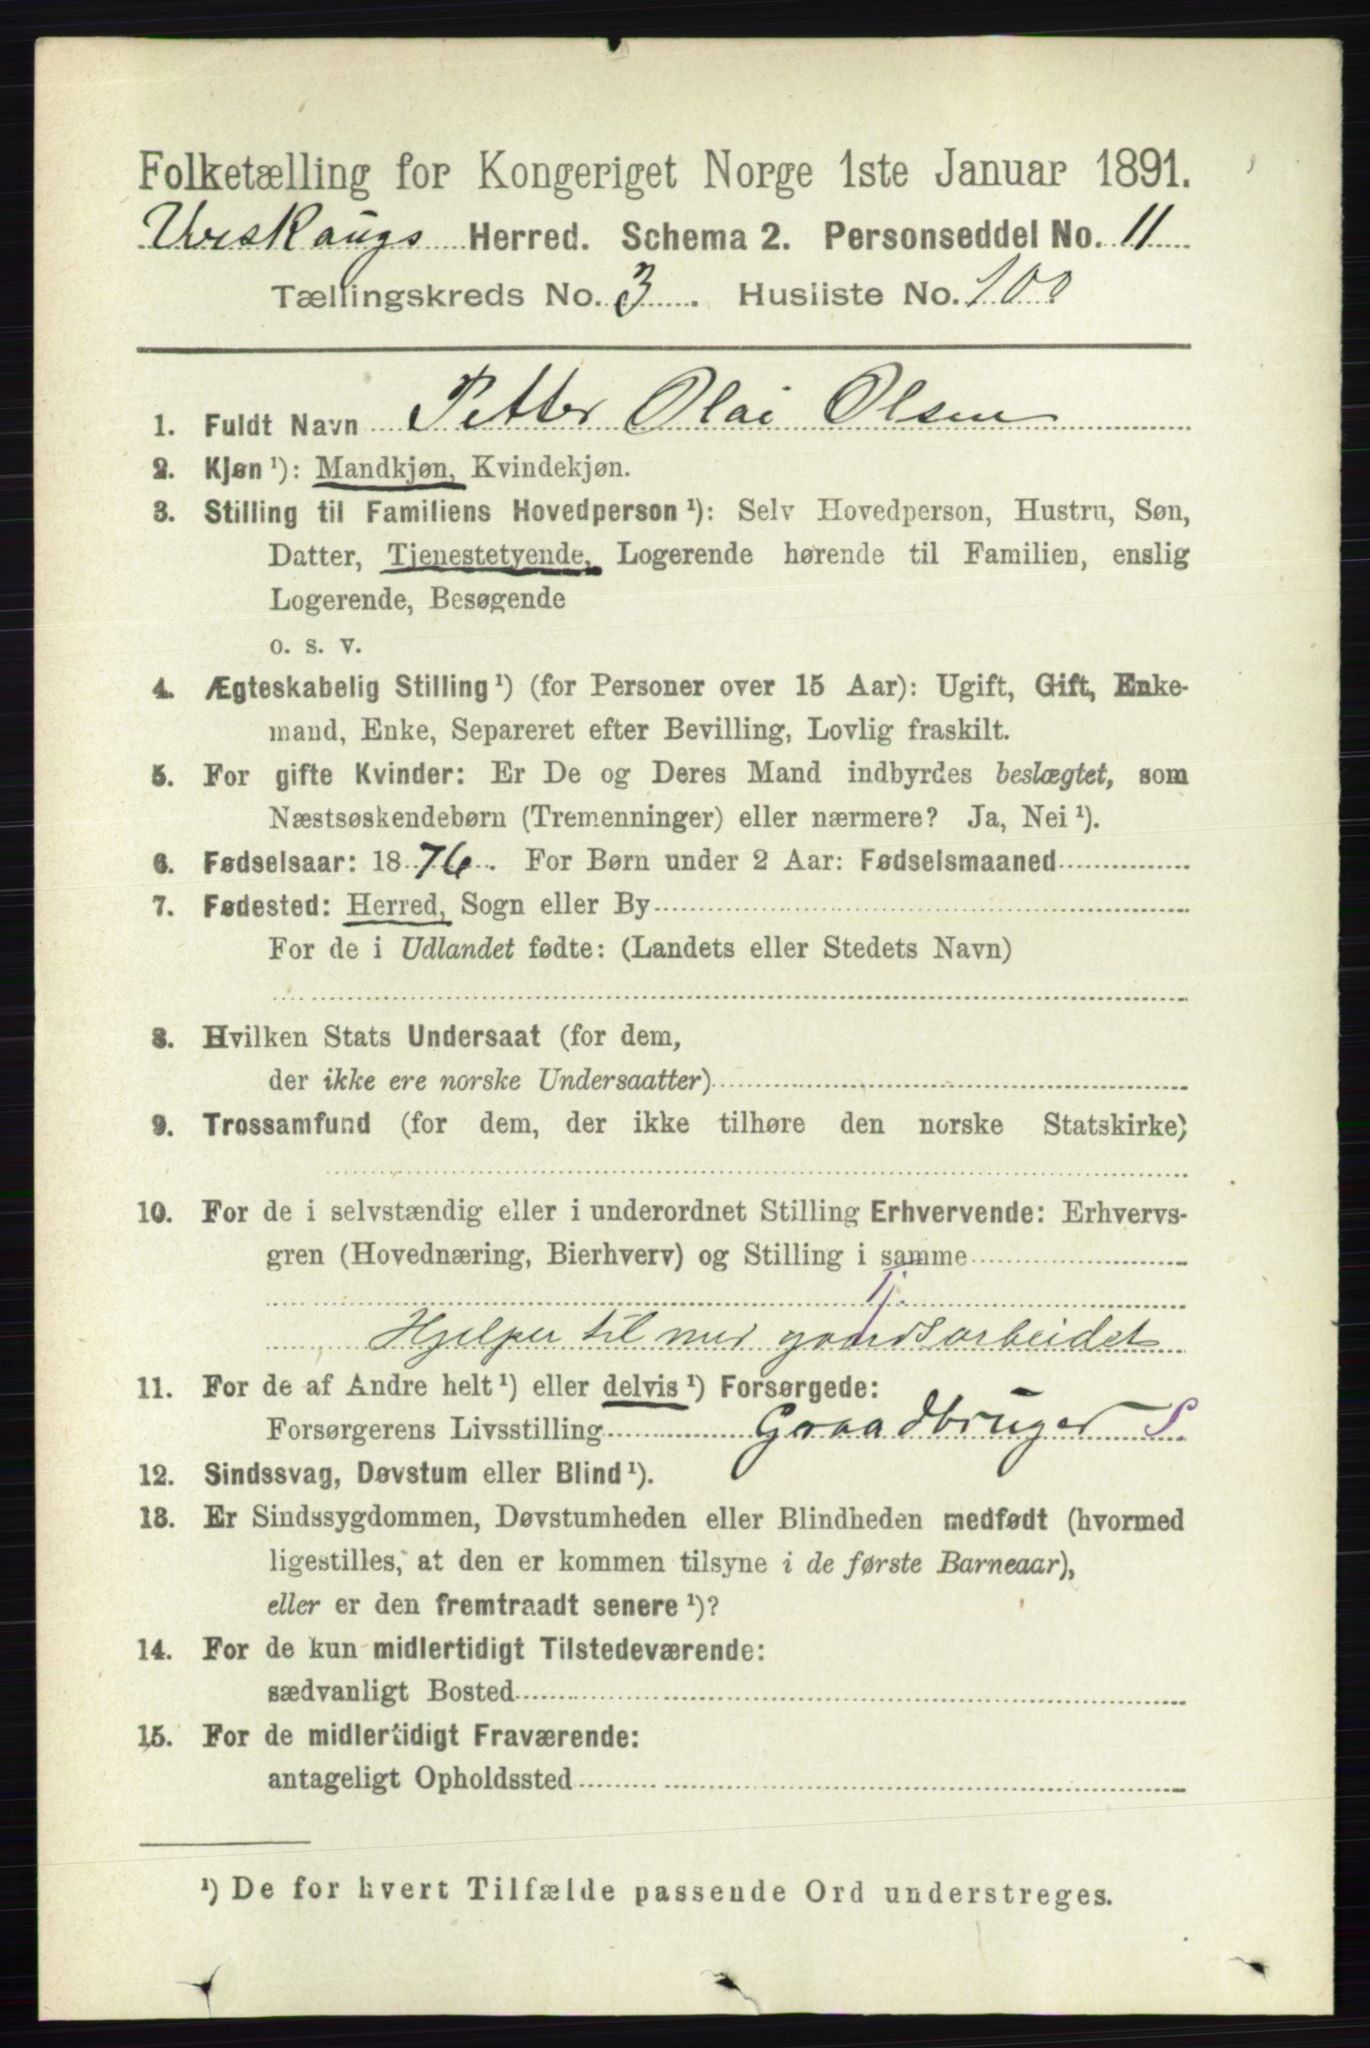 Folketælling for Kongeriget Norge 1ste Januar 1891.
Urskougs Herred. Schema 2. Personseddel No. 11
Tællingskreds No. 3. Husliste No. 100
1. Fuldt Navn Petter Olai Olsen
2. Kjøn ¹): Mandkjøn, Kvindekjøn.
3. Stilling til Familiens Hovedperson ¹): Selv Hovedperson, Hustru, Søn,
Datter, Tjenestetyende, Logerende hørende til Familien, enslig
Logerende, Besøgende
o. s. v.
4. Ægteskabelig Stilling ¹) (for Personer over 15 Aar): Ugift, Gift, Enke-
mand, Enke, Separeret efter Bevilling, Lovlig fraskilt.
5. For gifte Kvinder: Er De og Deres Mand indbyrdes beslægtet, som
Næstsøskendebørn (Tremenninger) eller nærmere? Ja, Nei ¹).
6. Fødselsaar: 1876. For Børn under 2 Aar: Fødselsmaaned
7. Fødested: Herred, Sogn eller By
For de i Udlandet fødte: (Landets eller Stedets Navn)
8. Hvilken Stats Undersaat (for dem,
der ikke ere norske Undersaatter)
9. Trossamfund (for dem, der ikke tilhøre den norske Statskirke)
10. For de i selvstændig eller i underordnet Stilling Erhvervende: Erhvervs-
gren (Hovednæring, Bierhverv) og Stilling i samme
Tj.
Hjelper til med gaardsarbeidet
11. For de af Andre helt ¹) eller delvis ¹) Forsørgede:
Forsørgerens Livsstilling Graadbruger S
12. Sindssvag, Døvstum eller Blind ¹).
13. Er Sindssygdommen, Døvstumheden eller Blindheden medfødt (hvormed
ligestilles, at den er kommen tilsyne i de første Barneaar),
eller er den fremtraadt senere ¹)?
14. For de kun midlertidigt Tilstedeværende:
sædvanligt Bosted
15. For de midlertidigt Fraværende:
antageligt Opholdssted
¹) De for hvert Tilfælde passende Ord understreges.